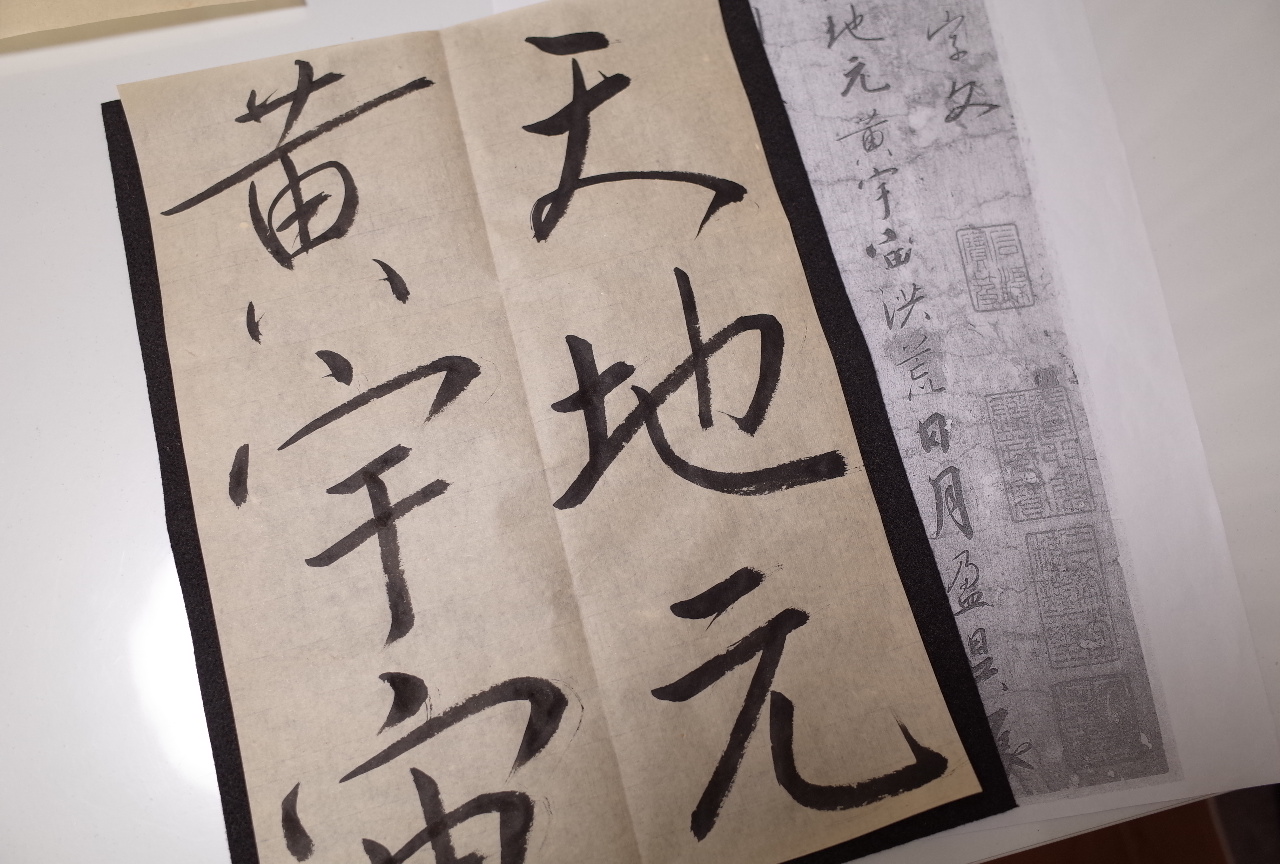 天地元
黄宇宙
字文
地元黄宇宙洪荒日月盈昃辰